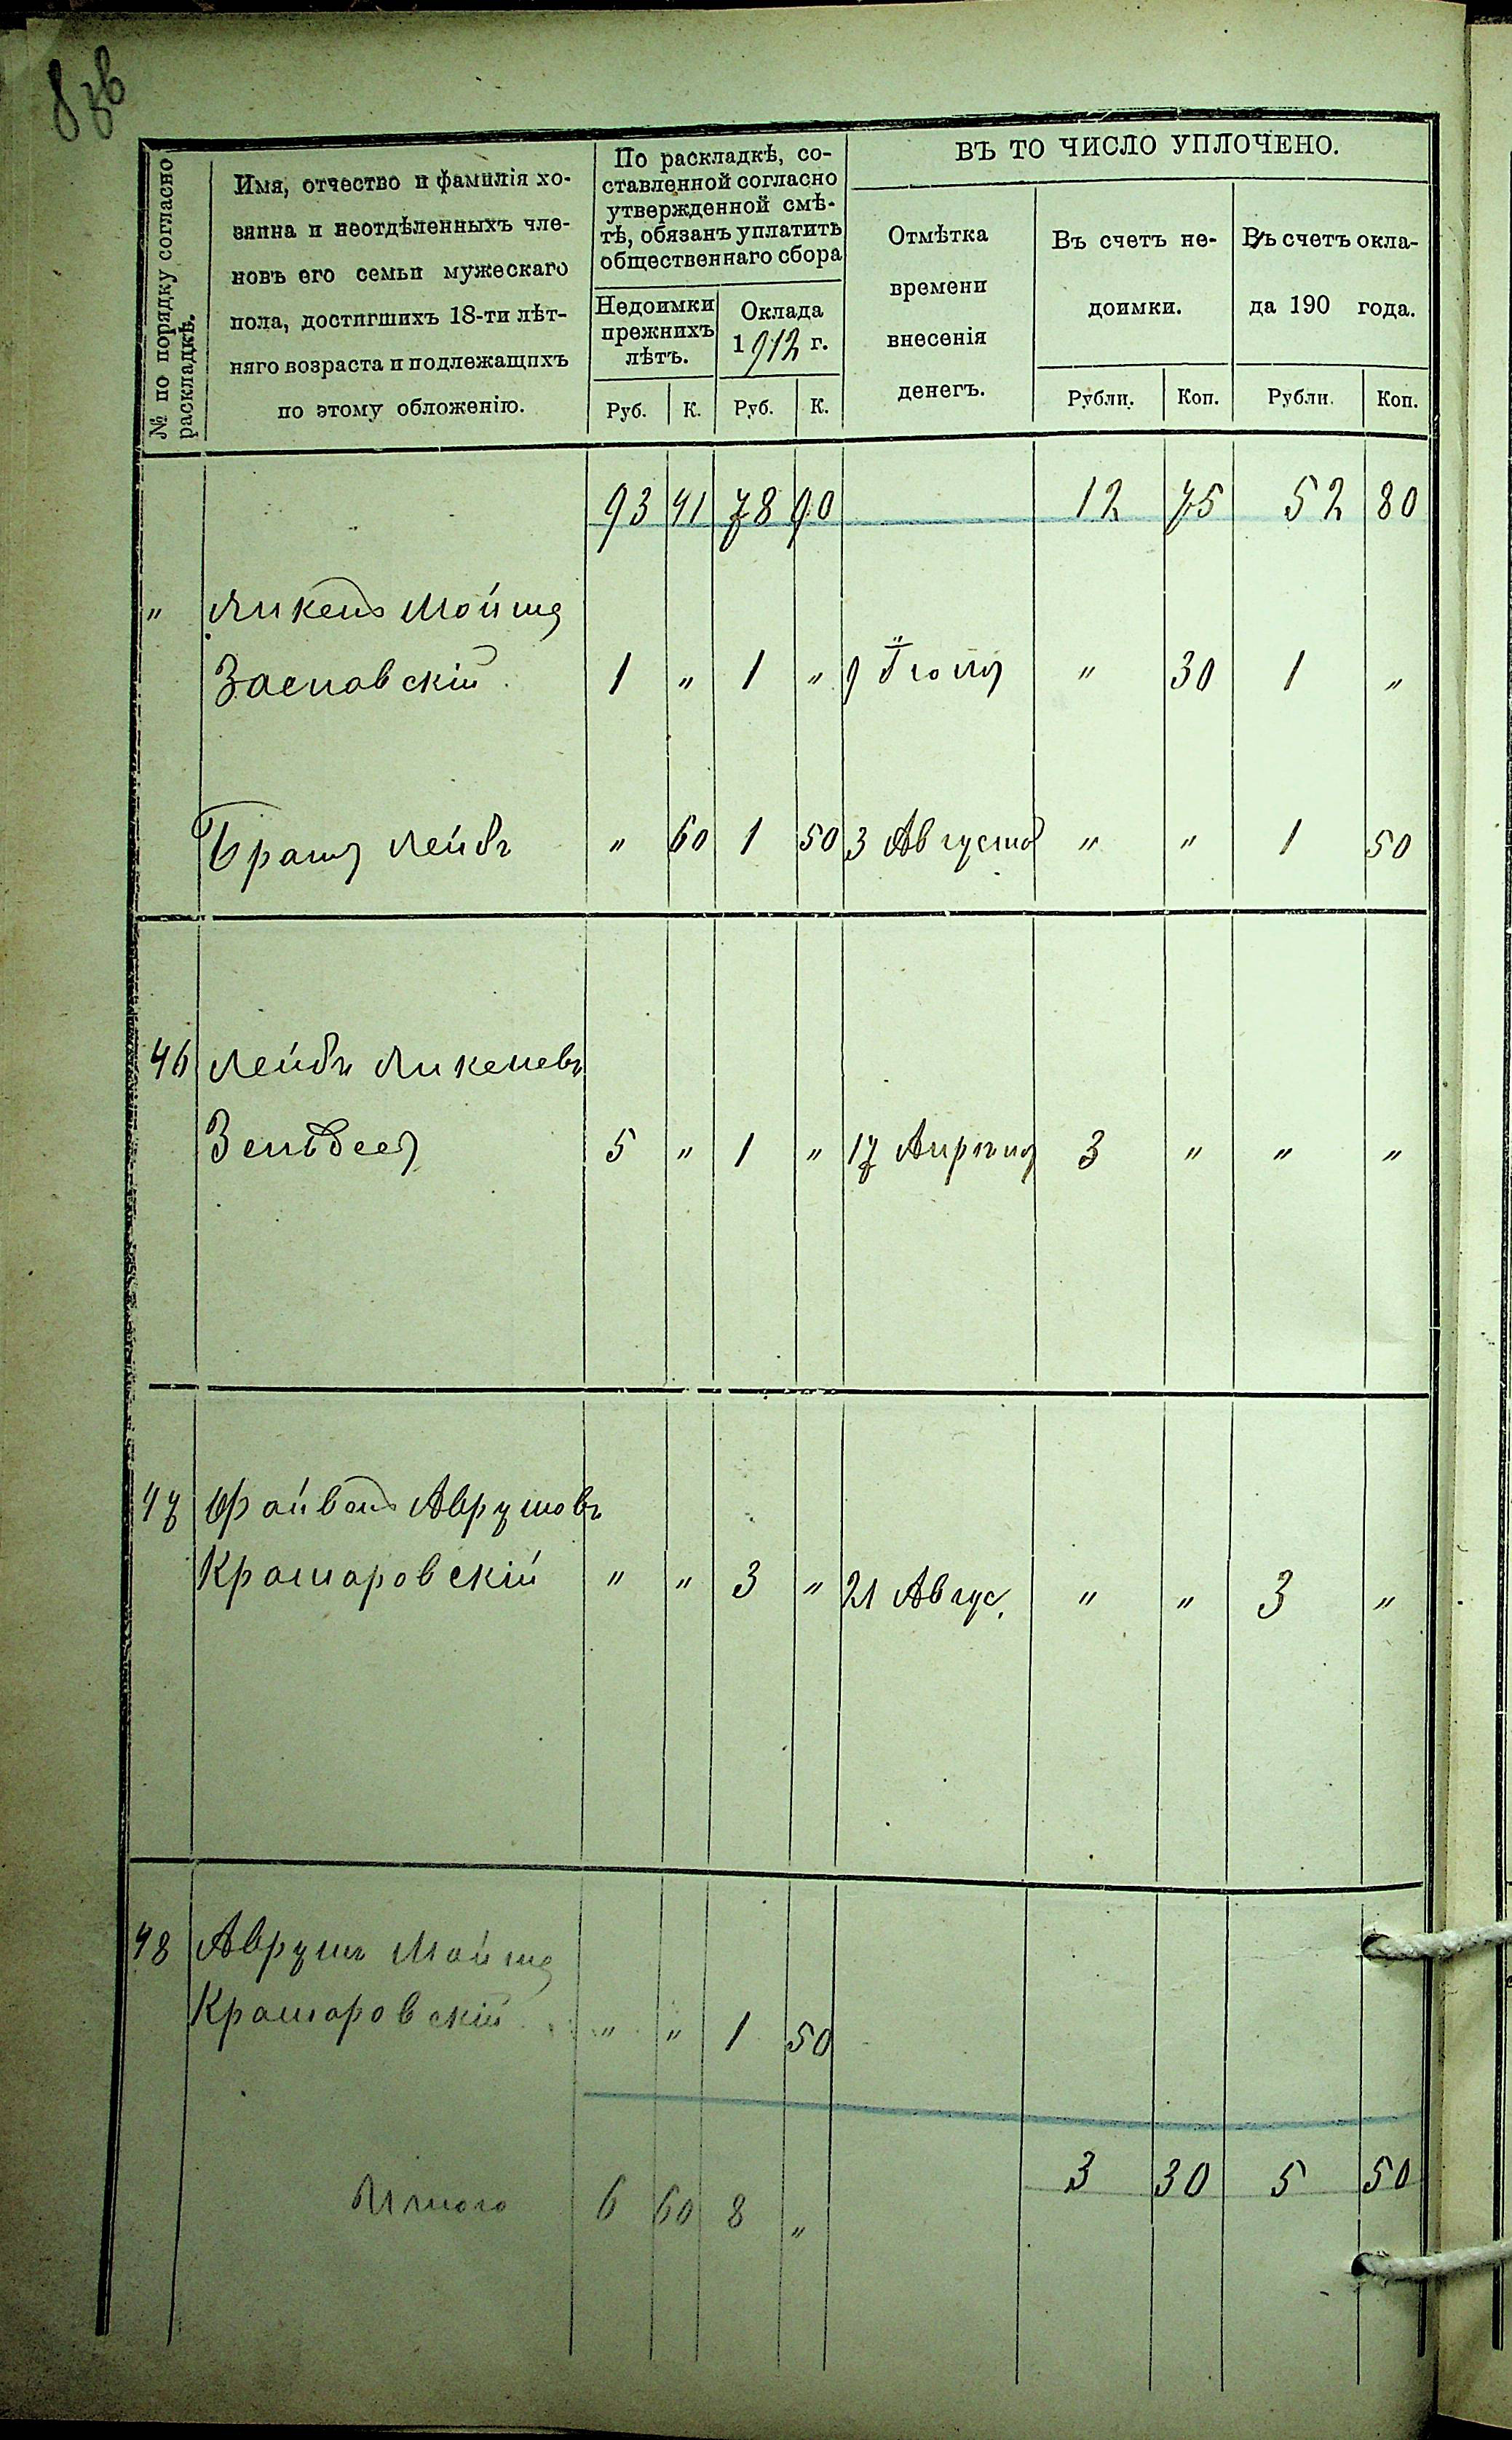 8 зв
№ по порядку согласно раскладкѣ.
Имя, отчество и фамилія хо-
зяина и неотдѣленныхъ чле-
новъ его семьи мужескаго
пола, достигшихъ 18-ти лѣт-
няго возраста и подлежащихъ
по этому обложенію.
По раскладкѣ, со-
ставленной согласно
утвержденной смѣ-
тѣ, обязанъ уплатить
общественнаго сбора
Недоимки
прежнихъ
лѣтъ.
Оклада
1912 г.
Руб. К. Руб. К.
ВЪ ТО ЧИСЛО УПЛОЧЕНО.
Отмѣтка
времени
внесенія
денегъ.
Въ счетъ не-
доимки.
Рубли. Коп.
Въ счетъ окла-
да 190 года.
Рубли. Коп.
93 41 78 90 12 75 52 80
" Янкель Мойше
Заславскій 1 " 1 " 9 Іюля " 30 1 "
Братъ Лейбъ " 60 1 50 3 Августа " " 1 50
46 Лейбъ Янкелевъ
5 " 1 " 17 Апрѣля 3 " " "
47 Файвель Аврумовъ
Крамаровскій " " 3 " 21 Авгус. " " 3 "
48 Аврумъ Мойше
Крамаровскій " " 1 50
Итого 6 60 8 " 3 30 5 50